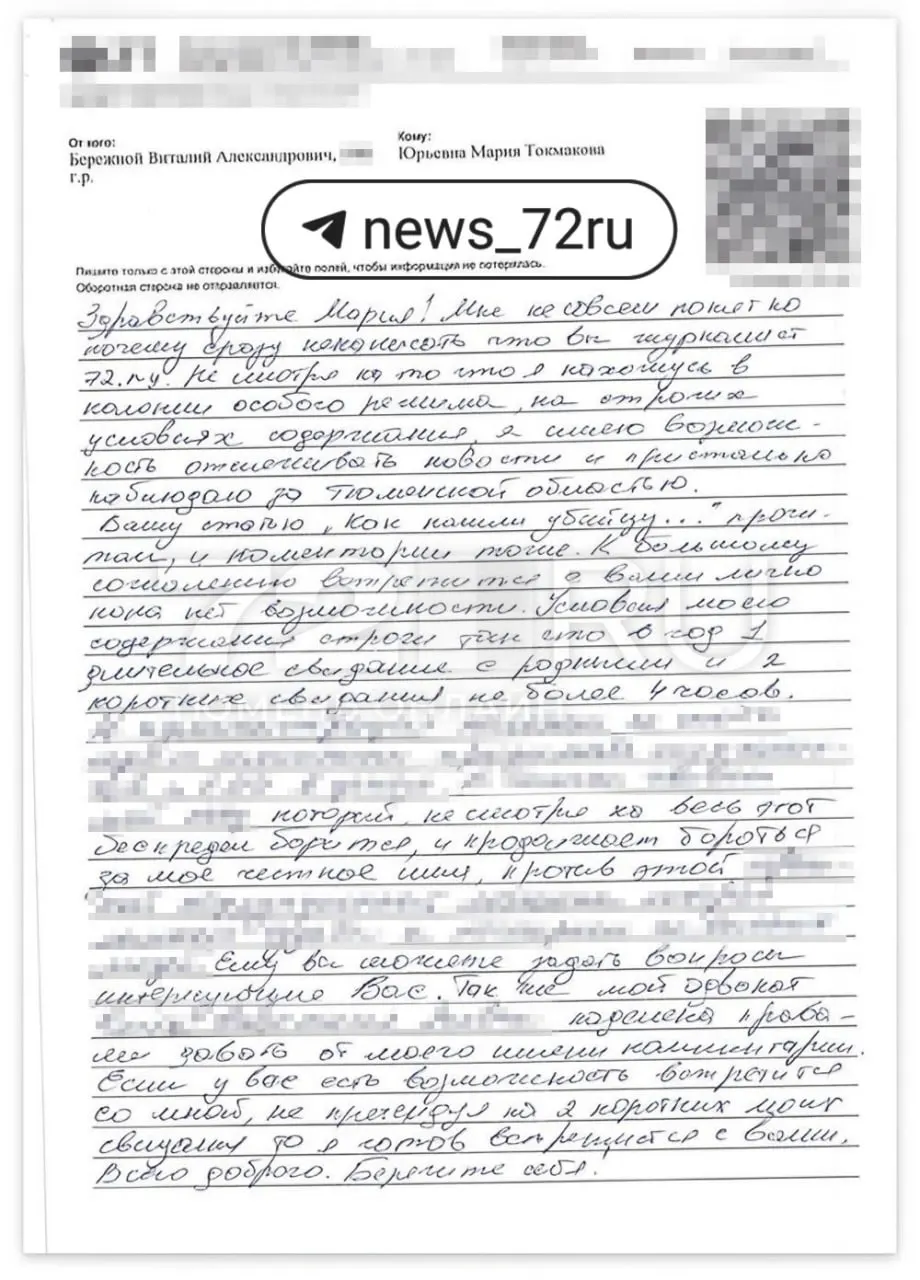 От кого:
Бережной Виталий Александрович,
г.р.
Кому:
Юрьевна Мария Токмакова
news_72ru
Пишите только с этой стороны и избегайте полей, чтобы информация не потерялась.
Оборотная сторона не отправляется.
Здравствуйте Мария! Мне не совсем понятно
почему сразу ненаписать что вы журналист
72.ру. Не смотря на то что я нахожусь в
колонии особого режима, на строгих
условиях содержания, я имею возмож-
ность отслеживать новости и пристально
наблюдаю за Тюменской областью.
Вашу статью „Как нашли убийцу..." прочи-
тал, и коментарии тоже. К большому
сожалению встретится с вами лично
пока нет возможности. Условия моего
содержания строги так что в год 1
длительное свидание с родными и 2
коротких свидания не более 4 часов.
который, не смотря на весь этот
беспредел борится, и продолжает бороться
за мое честное имя, против этой
Ему вы можете задать вопросы
интересующие Вас. Так же мой адвокат
наделена права-
ми давать от моего имени комментарии.
Если у вас есть возможность встретится
со мной, не претендуя на 2 коротких моих
свидания то я готов встретится с вами.
Всего доброго. Берегите себя!